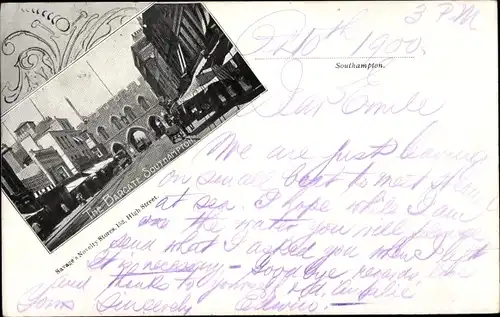 3 PM
10th 1900.
Southampton.
Dear Emile
We are just leaving
on small boat to meet
at sea. I hope while I am
on the water you will
send what I asked you when I left
It is necessary – Good bye regards
and thanks to yourself
Yours Sincerely
THE BARGATE SOUTHAMPTON
Savage's Novelty Stores, 150, High Street.